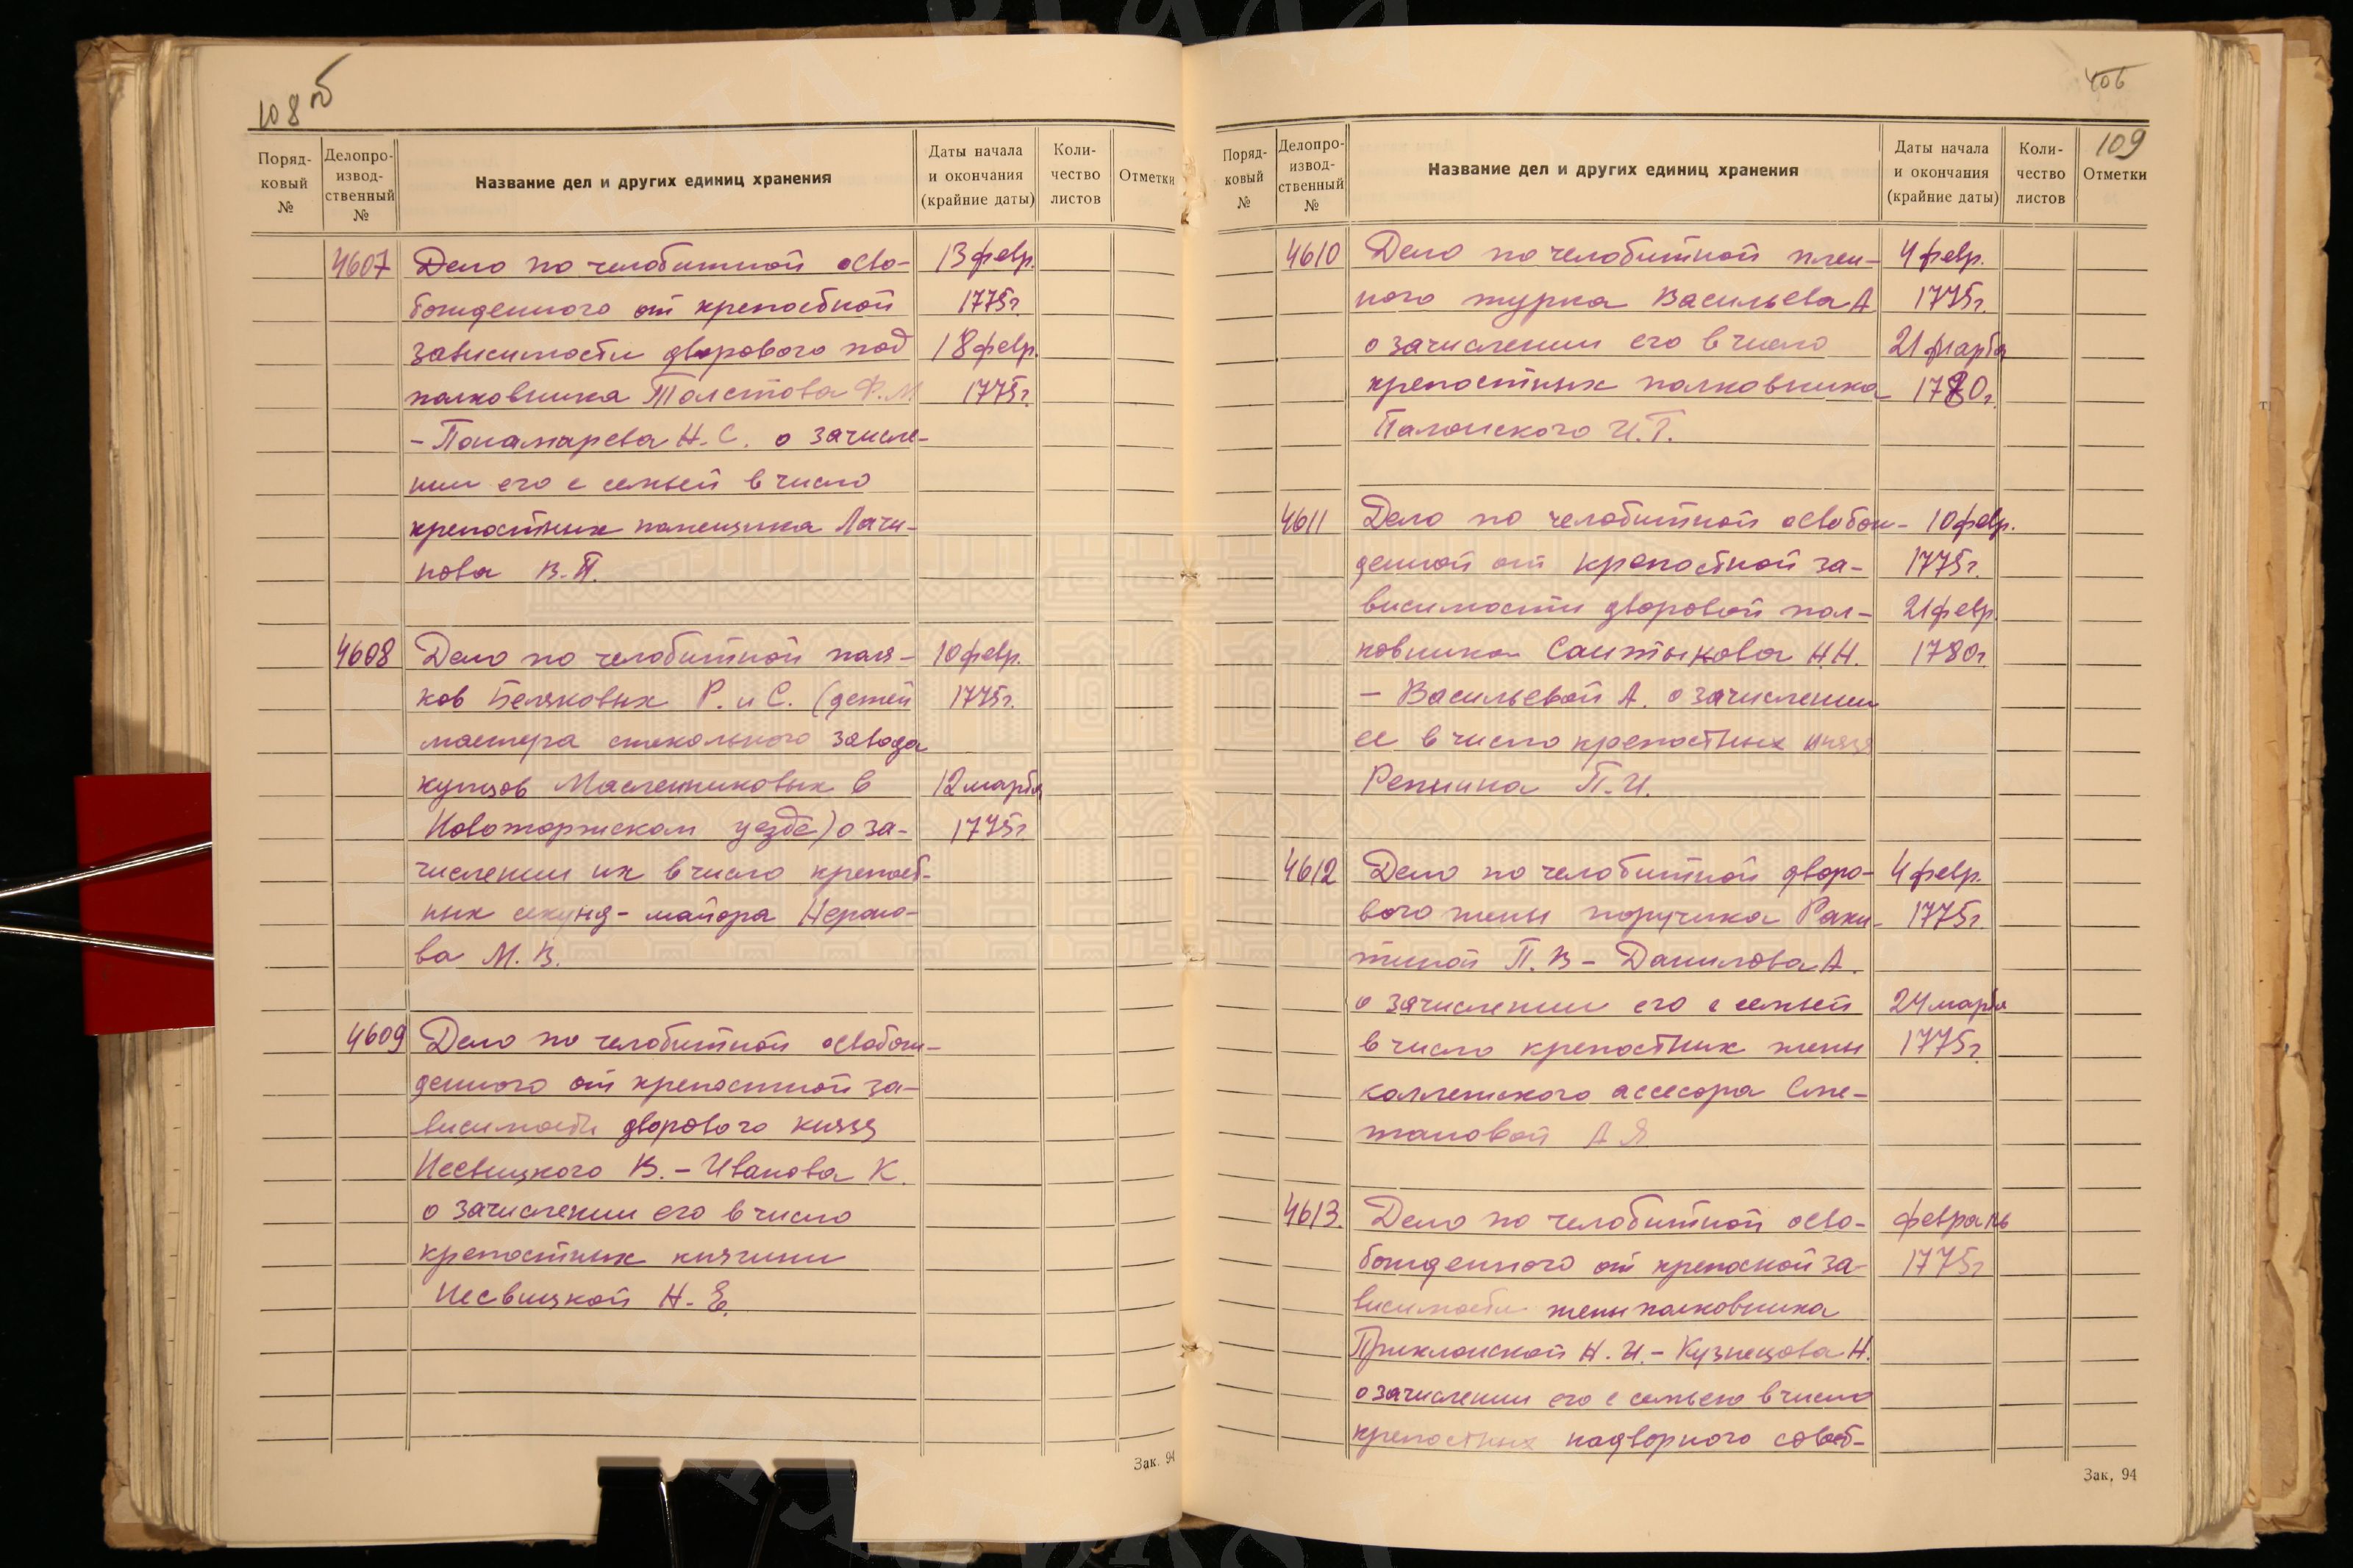 108 об
Поряд-
ковый
№
Делопро-
извод-
ственный
№
Название дел и других единиц хранения
Даты начала
и окончания
(крайние даты)
Коли-
чество
листов
Отметки
4607 Дело по челобитной осво- 13 февр.
божденного от крепостной 1775г.
зависимости дворового под 18 февр.
полковника Толстова Ф.М 1775г.
- Понамарева Н.С. о зачисле-
нии его с семьей в число
крепостных помещика Лачи-
нова В.П.
4608 Дело по челобитной поля- 10 февр.
ков Беляковых Р. и С. (детей 1775г.
мастера стекольного завода
купцов Масленниковых в 12 марта
Новоторжском уезде) о за- 1775г
числении их в число крепост-
ных секунд-майора Нероно-
ва М.В.
4609 Дело по челобитной освобож-
денного от крепостной за-
висимости дворового князя
Несвицкого В. - Иванова К.
о зачислении его в число
крепостных княгини
Несвицкой Н.Е.
Зак. 94
406
109
Поряд-
ковый
№
Делопро-
извод-
ственный
№
Название дел и других единиц хранения
Даты начала
и окончания
(крайние даты)
Коли-
чество
листов
Отметки
4610 Дело по челобитной плен- 4 февр.
ного турка Васильева А 1775г.
о зачислении его в число 21 марта
крепостных полковника 1780г.
Полонского И.Г.
4611 Дело по челобитной освобож- 10 февр.
денной от крепостной за- 1775г.
висимости дворовой пол- 21 февр.
ковника Салтыкова Н.Н. 1780г.
- Васильевой А. о зачислении
ее в число крепостных князя
Репнина П.И.
4612 Дело по челобитной дворо- 4 февр.
вого жены поручика Раки- 1775г.
тиной П.В - Данилова А.
о зачислении его с семьей 24 марта
в число крепостных жены 1775г.
коллежского ассесора Сте-
пановой А Я
4613. Дело по челобитной осво- февраль
божденного от крепоской за- 1775г
висимости жены полковника
Приклонской Н.И. - Кузнецова Н.
о зачислении его с семьею в число
крепостных надворного совет-
Зак, 94